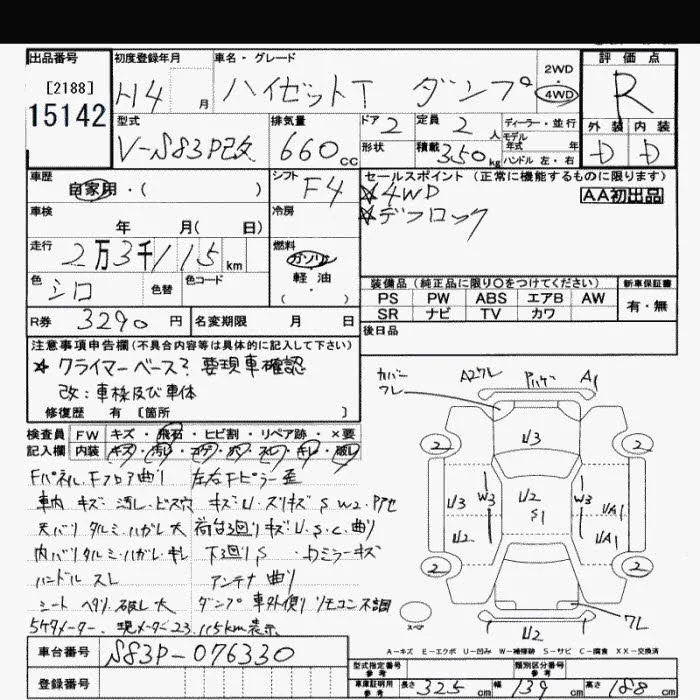 出品番号 初度登録年月 車名・グレード 評価点
[2188] H4 月 ハイゼットT ダンプ 2WD・4WD R
15142
型式 排気量 ドア 2 定員 2人 ディーラー・並行 外装 内装
V-S83P改 660cc 形状 積載 350kg モデル年式 年 ハンドル 左・右 D D
車歴 自家用・( ) シフト F4 セールスポイント(正常に機能するものに限ります)
☆4WD AA初出品
☆デフロック
車検 年 月( 日) 冷房
走行 2万3千115km 燃料 ガソリン 軽油 ( ・ )
色 シロ 色替 色コード 装備品(純正品に限り○をつけてください) 新車保証書
PS PW ABS エアB AW 有・無
SR ナビ TV カワ
R券 3290円 名変期限 月 日 後日品
注意事項申告欄(不具合内容等は具体的に記入して下さい)
☆クライマーベース?要現車確認
改:車様及び車体
修復歴 有 [箇所 ]
検査員 FW キズ・飛石・ヒビ割・リペア跡・×要
記入欄 内装 キズ・汚レ・コゲ・穴・スレ・キレ・破レ
Fパネル.Fフロア曲り 左右Fピラー歪
車内 キズ・汚レ・ビス穴 キズU・ズリキズ S W2.Pアセ
天バリ タルミ・ハガレ大 荷台3回りキズU.S.C.曲り
内バリタルミ・ハガレ・キレ 下3回りS Dミラーキズ
ハンドル スレ アンテナ曲り
シート ヘタリ・破レ大 ダンプ 車外側リモコン不調
5ケタメーター.現メーター23.115km表示
カバーワレ A2ワレ Pハゲ A1
U3
2 2
U3 W3 U2 W3 UA1
S1
U2 UA1
2 2
ワレ
スペア U2
A-キズ E-エクボ U-凹み W-補修跡 S-サビ C-腐食 XX-交換済
車台番号 S83P-076330
登録番号
型式指定番号 参考 類別区分番号 参考
車庫証明用 参考 長さ 325cm 幅 139cm 高さ 188cm